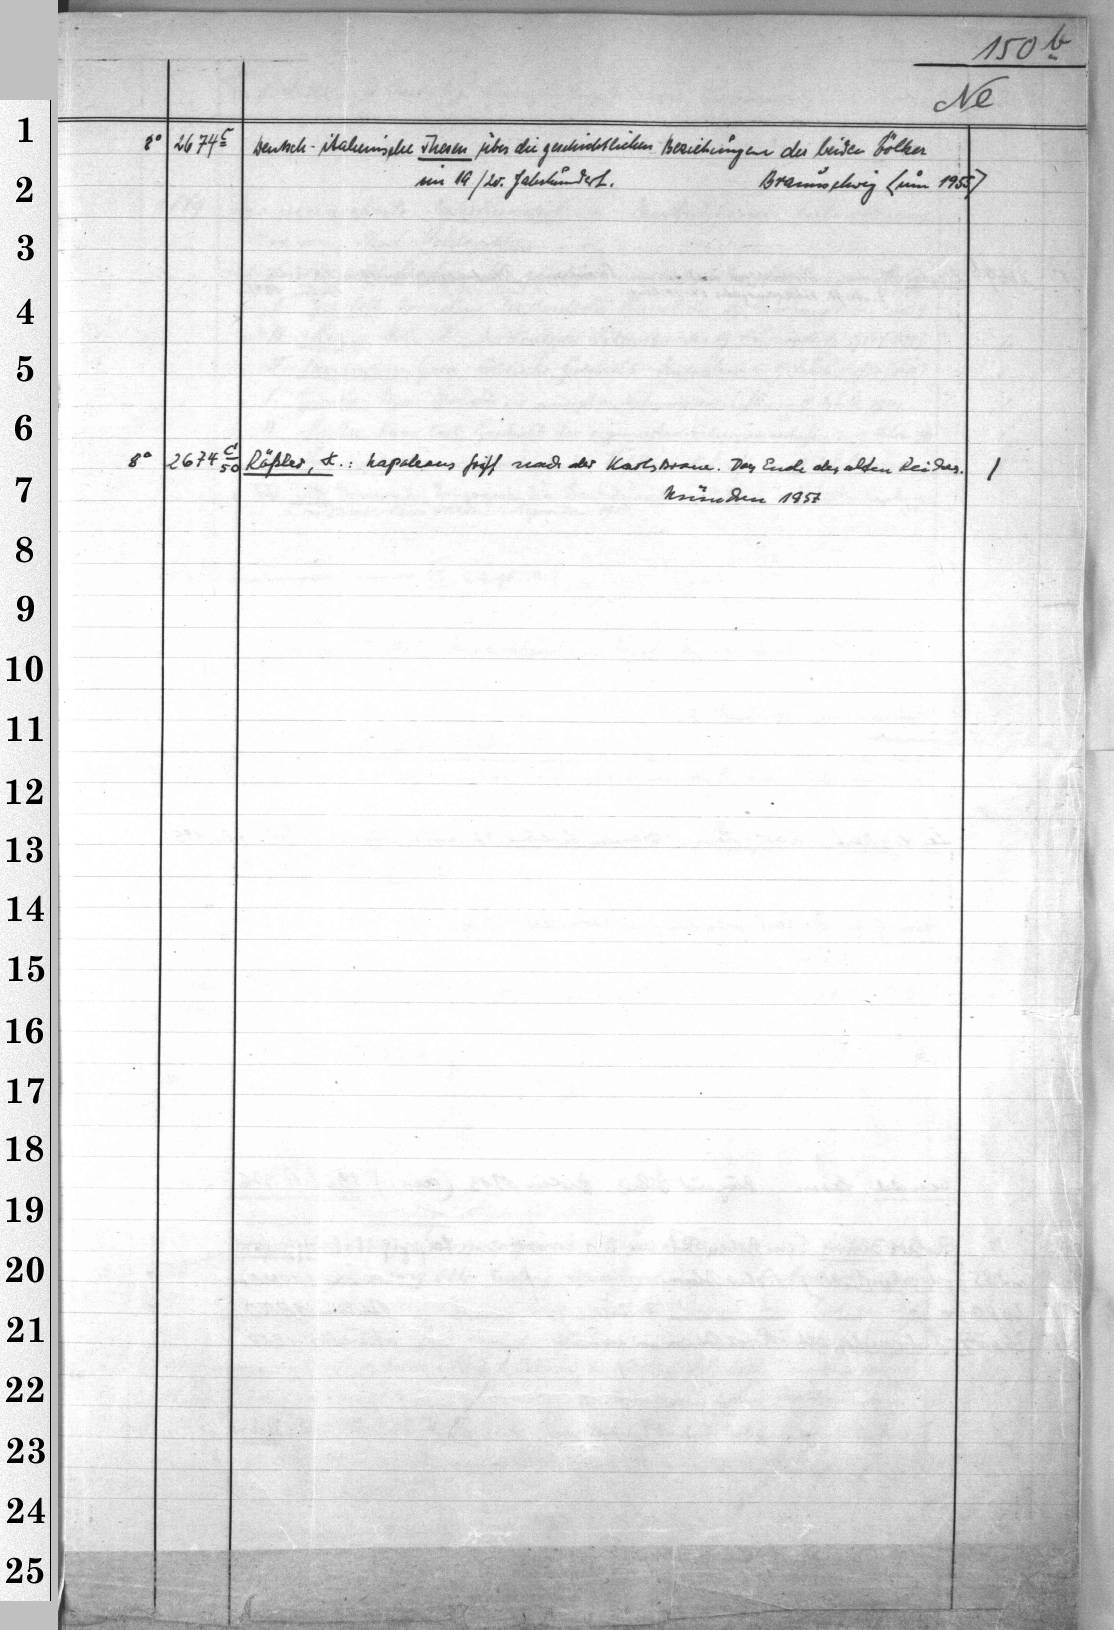 150 b
Ne
1
8° 2674 c Deutsch-italienische Thesen über die geschichtlichen Beziehungen der beiden Völker
2
im 19/20. Jahrhundert. Braunschweig (um 1955)
3
4
5
6
8° 2674 c/50 Rößler, H.: Napoleons Griff nach der Karlskrone. Das Ende des alten Reiches. 1
7
München 1957
8
9
10
11
12
13
14
15
16
17
18
19
20
21
22
23
24
25